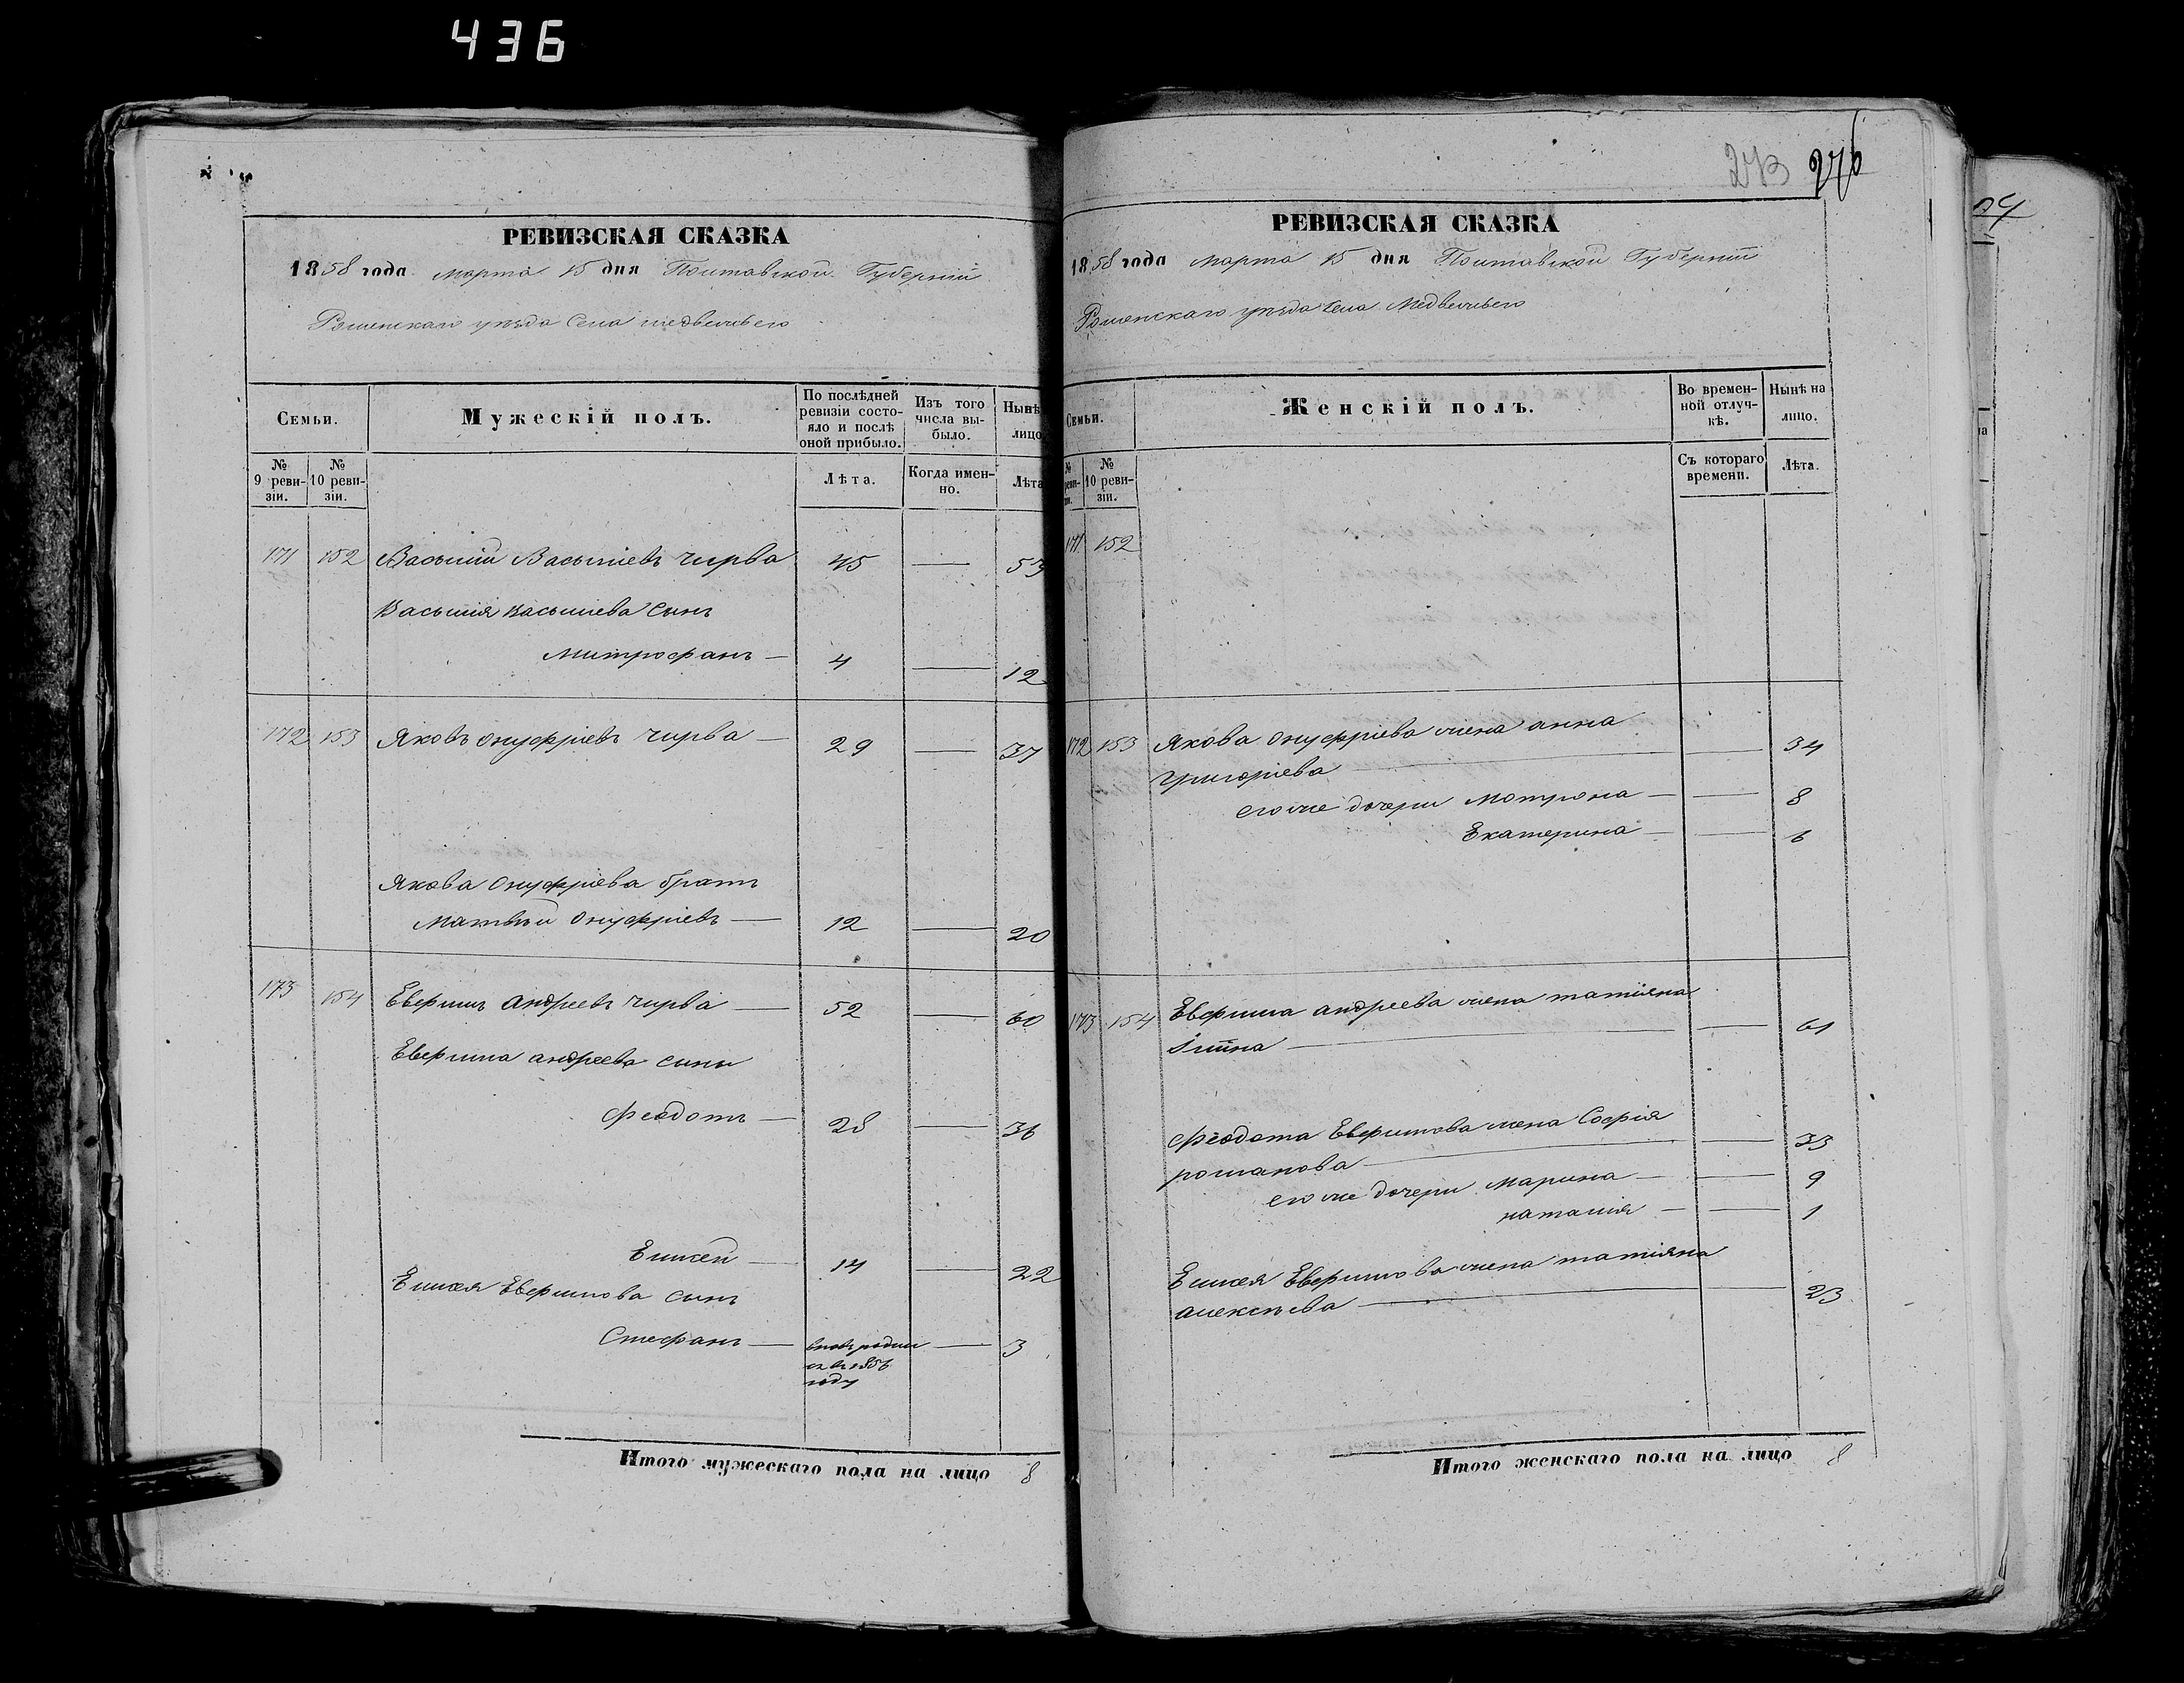 436
РЕВИЗСКАЯ СКАЗКА
1858 года марта 15 дня Полтавской Губерніи
Роменскаго уезда Села медвежьего
Семьи.
Мужескій полъ.
По послѣдней ревизіи состо-
яло и послѣ
оной прибыло.
Изъ того
числа вы-
было.
Нынѣ
лицо
№
9 реви-
зіи.
№
10 реви-
зіи.
Лѣта.
Когда имен-
но.
Лѣта
171 152 Василій Васильевъ чирва 45 — 53
Василія васильева сынъ
митрофанъ — 4 — 12
172 153 Яковъ онуфріевъ чирва — 29 — 37
Якова Онуфріева братъ
Матвѣй Онуфріевъ — 12 — 20
173 154 Евфимъ андреевъ чирва — 52 — 60
Евфима андреева сыны
Феодотъ — 28 — 36
Елисей — 14 — 22
Елисея Евфимова сынъ
Стефанъ — — 3
году
Итого мужескаго пола на лицо 8
273 276
РЕВИЗСКАЯ СКАЗКА
1858 года марта 15 дня Полтавской Губерніи
Роменскаго уезда села Медвежьего
Семьи.
Женскій полъ.
Во времен-
ной отлуч-
кѣ.
Нынѣ на
лицо.
№
реви-
зіи.
№
10 реви-
зіи.
Съ котораго
времени.
Лѣта.
171 152
172 153 Якова Онуфріева жена анна
григоріева — — 34
его же дочери Мотрона — — 8
Екатерина — — 6
173 154 Евфима андреева жена татіяна
— — 61
Феодота Евфимова жена Софія
романова — — 33
его же дочери Марина — — 9
наталія — — 1
Елисея Евфимова жена татіяна
алексѣева — — 23
Итого женскаго пола на лицо 8